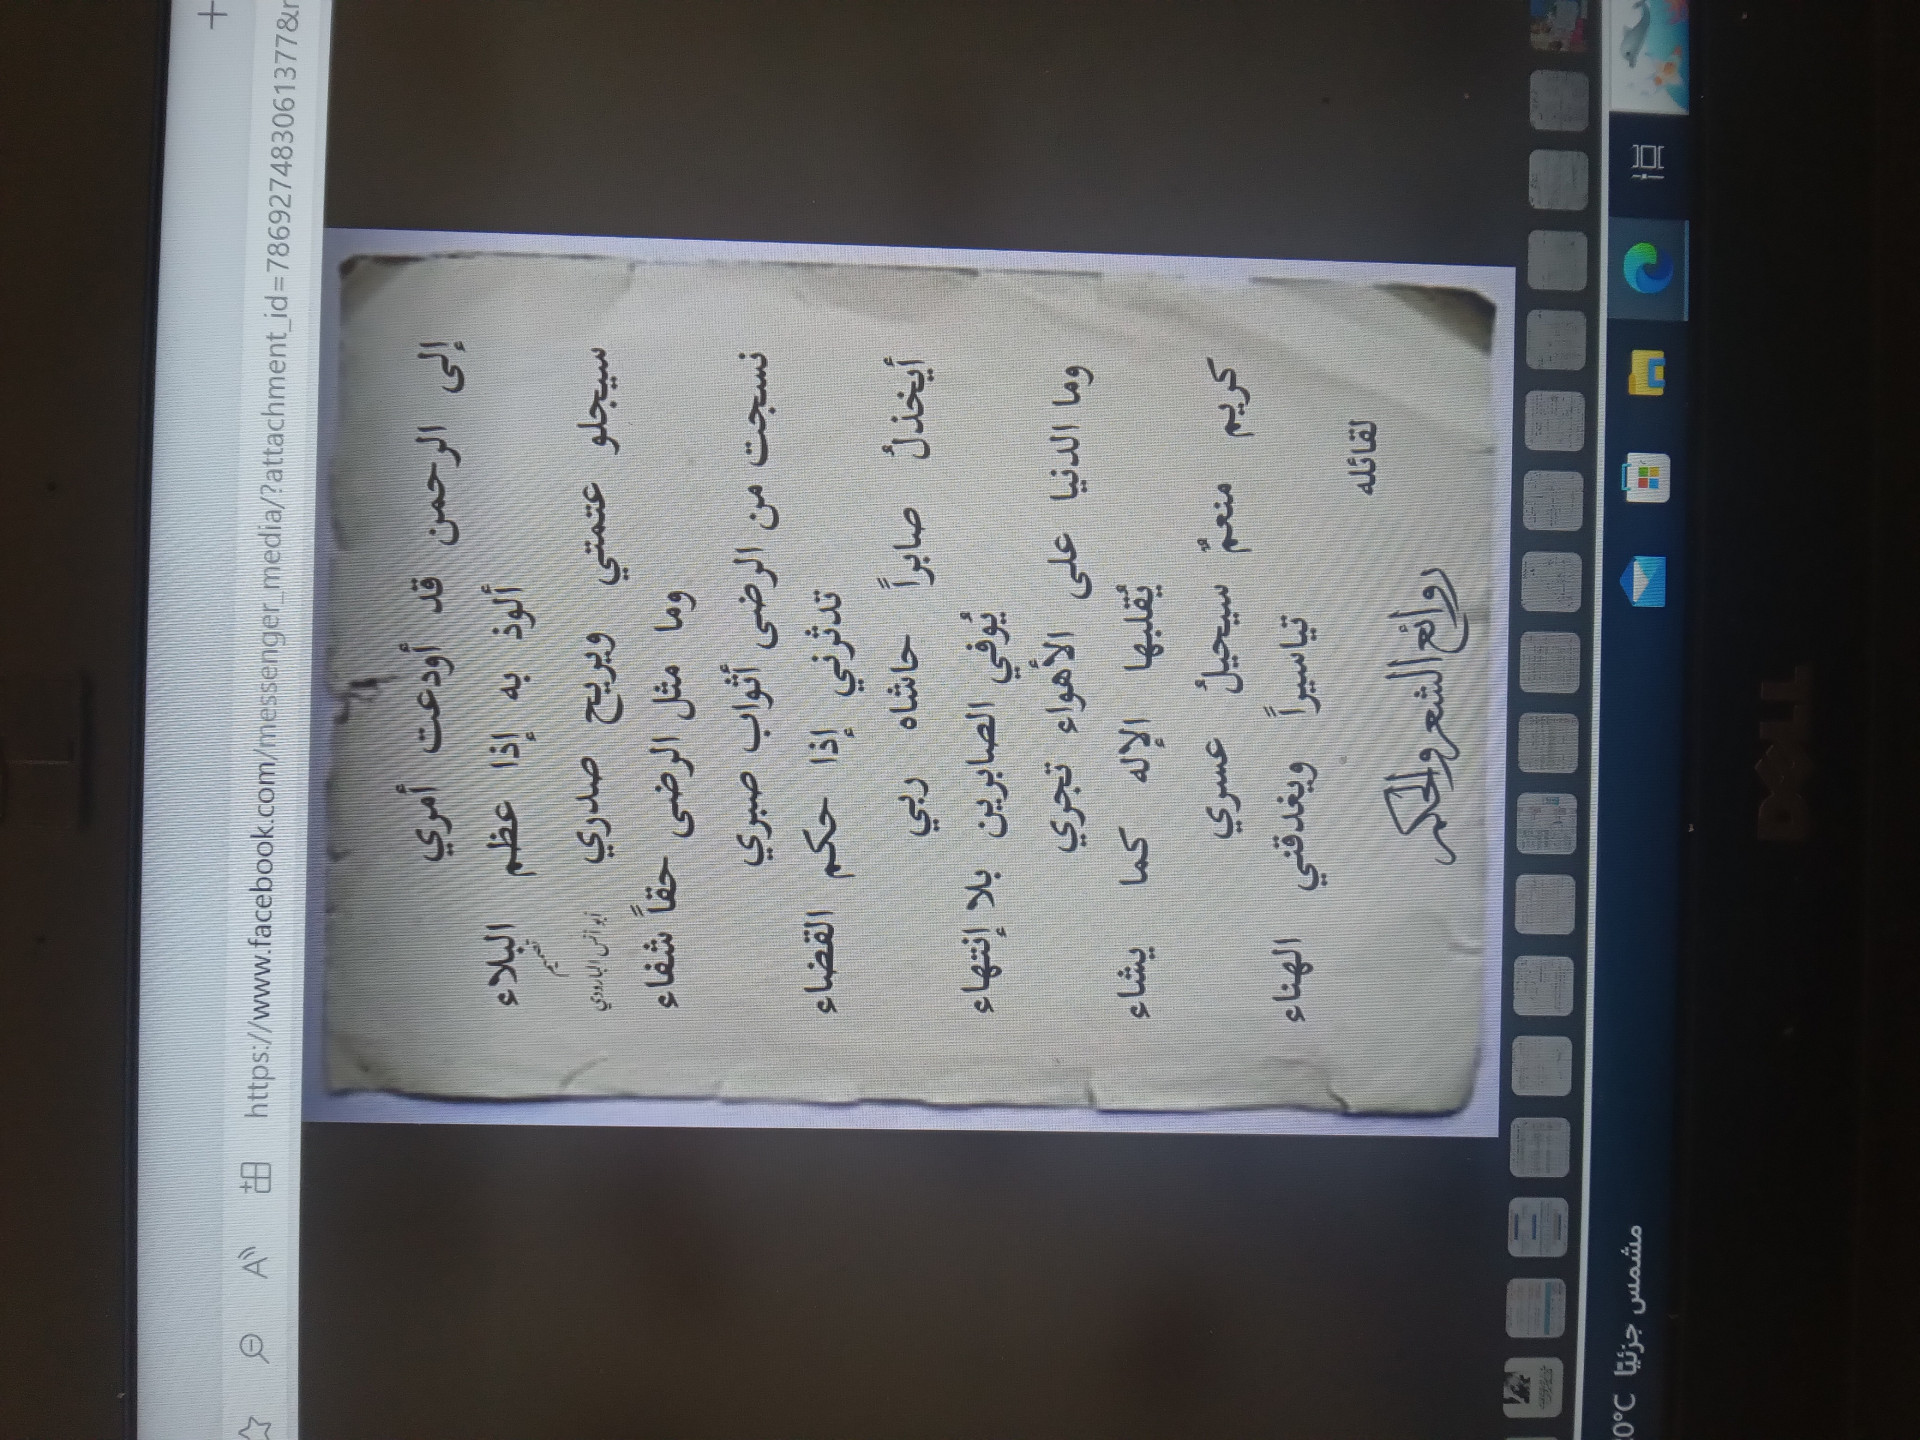 +
https://www.facebook.com/messenger_media/?attachment_id=786927483061377&r
إلى الرحمن قد أودعت أمري
ألوذ به إذا عظم البلاء
سيجلو عتمتي ويريح صدري
تصميم
أبو أنس البارودي
وما مثل الرضى حقاً شفاء
نسجت من الرضى أثواب صبري
تدثرني إذا حكم القضاء
أيخذلُ صابراً حاشاه ربي
يُوفي الصابرين بلا إنتهاء
وما الدنيا على الأهواء تجري
يُقلبها الإله كما يشاء
كريم منعمٌ سيحيلُ عسري
تياسيراً ويغدقني الهناء
لقائله
روائع الشعر والحكم
0°C مشمس جزئيًا
DELL